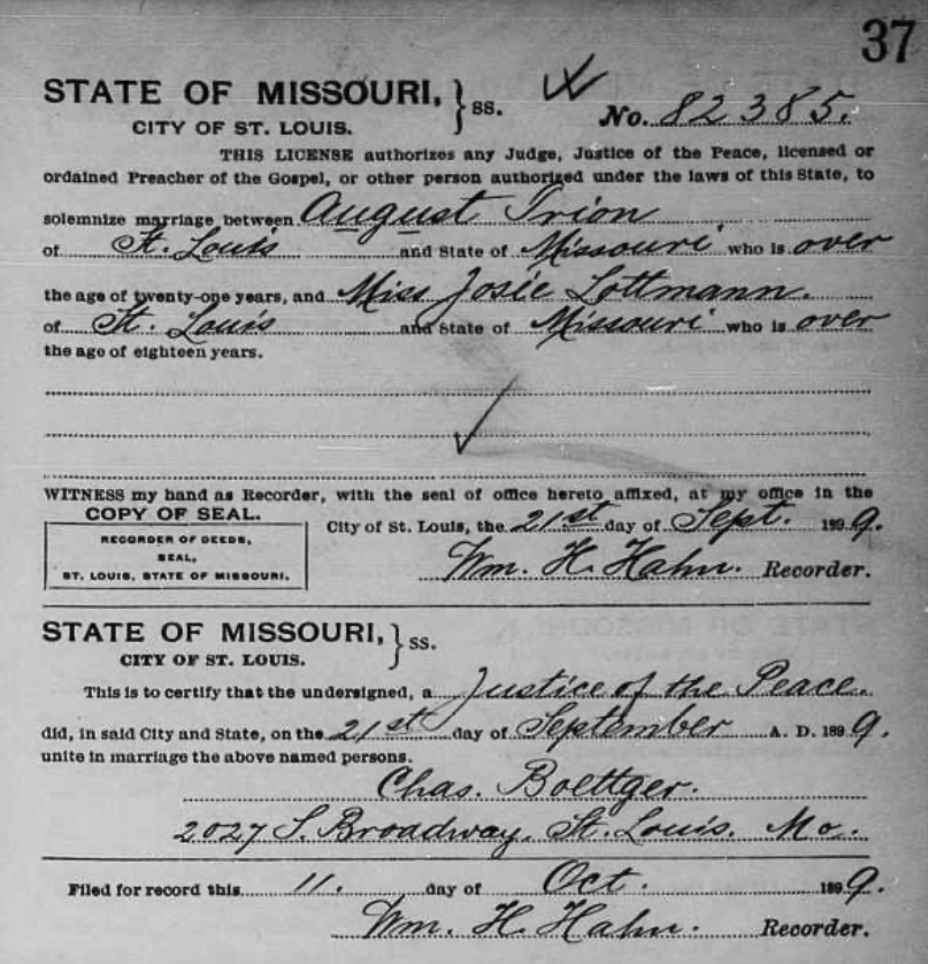 37
STATE OF MISSOURI, } ss. No. 82385.
CITY OF ST. LOUIS.
THIS LICENSE authorizes any Judge, Justice of the Peace, licensed or
ordained Preacher of the Gospel, or other person authorized under the laws of this State, to
solemnize marriage between August Trion
of St. Louis and State of Missouri, who is over
the age of twenty-one years, and Miss Josie Lottmann.
of St. Louis and State of Missouri who is over
the age of eighteen years.
WITNESS my hand as Recorder, with the seal of office hereto affixed, at my office in the
COPY OF SEAL.
City of St. Louis, the 21st day of Sept. 1899.
RECORDER OF DEEDS,
SEAL,
ST. LOUIS, STATE OF MISSOURI.
Wm. H. Hahn. Recorder.
STATE OF MISSOURI, } ss.
CITY OF ST. LOUIS.
This is to certify that the undersigned, a Justice of the Peace.
did, in said City and State, on the 21st day of September A. D. 1899.
unite in marriage the above named persons.
Chas. Boettger.
2027 S. Broadway, St. Louis. Mo.
Filed for record this 11. day of Oct. 1899.
Wm. H. Hahn. Recorder.